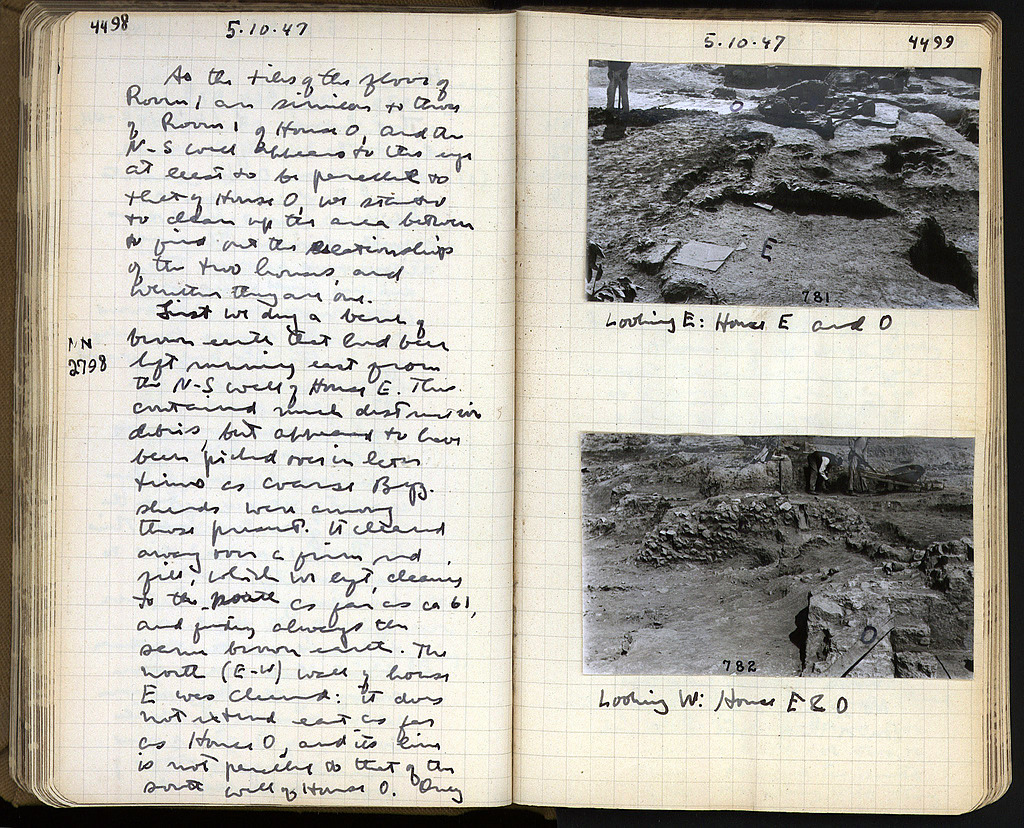 4498
5·10·47
As the tiles of the floor of
Room 1 are similar to those
of Room 1 of House O, and the
N-S wall appears to the eye
at least to be parallel to
that of House O, we started
to clean up the area between
to find out the relationships
of the two houses and
whether they are one.
First we dug a bank of
NN
2798
brown earth that had been
left running east from
the N-S wall of House E. This
contained much destruction
debris, but appeared to have
been picked over in later
times as coarse Byz.
sherds were among
those present. It cleared
away over a firm red
fill, which we left, cleaning
to the south as far as ca 61,
and finding always the
same brown earth. The
north (E-W) wall of house
E was cleared: it does
not extend east as far
as House O, and its line
is not parallel to that of the
south wall of House O. Only
5·10·47
4499
O
E
781
Looking E: House E and O
O
782
Looking W: House E & O